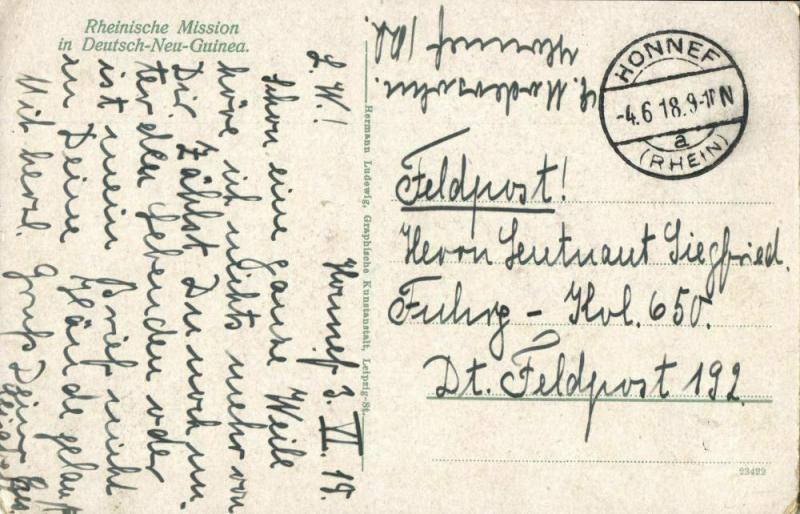 Rheinische Mission
in Deutsch-Neu-Guinea.
Honnef 3. VI. 18.
L. W.!
Schon eine ganze Weile
höre ich nichts mehr von
Dir. Zählst Du noch un
ter den Lebenden oder
ist mein Brief nicht
in Deine Hände gelangt
Mit herzl. Gruß Dein
Hermann Ludewig, Graphische Kunstanstalt, Leipzig-St.
Honnef
HONNEF
-4.6.18.9-10 N
a
(RHEIN)
Feldpost!
Herrn Leutnant Siegfried
Fuhrg - Kol. 650.
Dt. Feldpost 192
23422